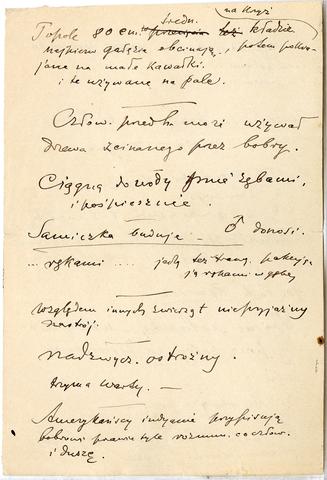 na krzyż
Topole 80 cm. średn. też kładzie
najpierw gałęzie obcinają, potem
jane na małe kawałki.
i te używane na pale.
Człow. przedh. mógł używać
drzewa ścinanego przez bobry.
Ciągną do wody pnie zębami,
i pośpiesznie.
Samiczka buduje — ♂ donosi.
... rękami ... jedzą też traw. pakują
ją rękami w gębę
względem innych zwierząt nieprzyjazny
nastrój.
nadzwycz. ostrożny.
trzyma warty. —
Amerykańscy indyanie przypisują
bobrowi prawie tyle rozumu co człow.
i duszę.